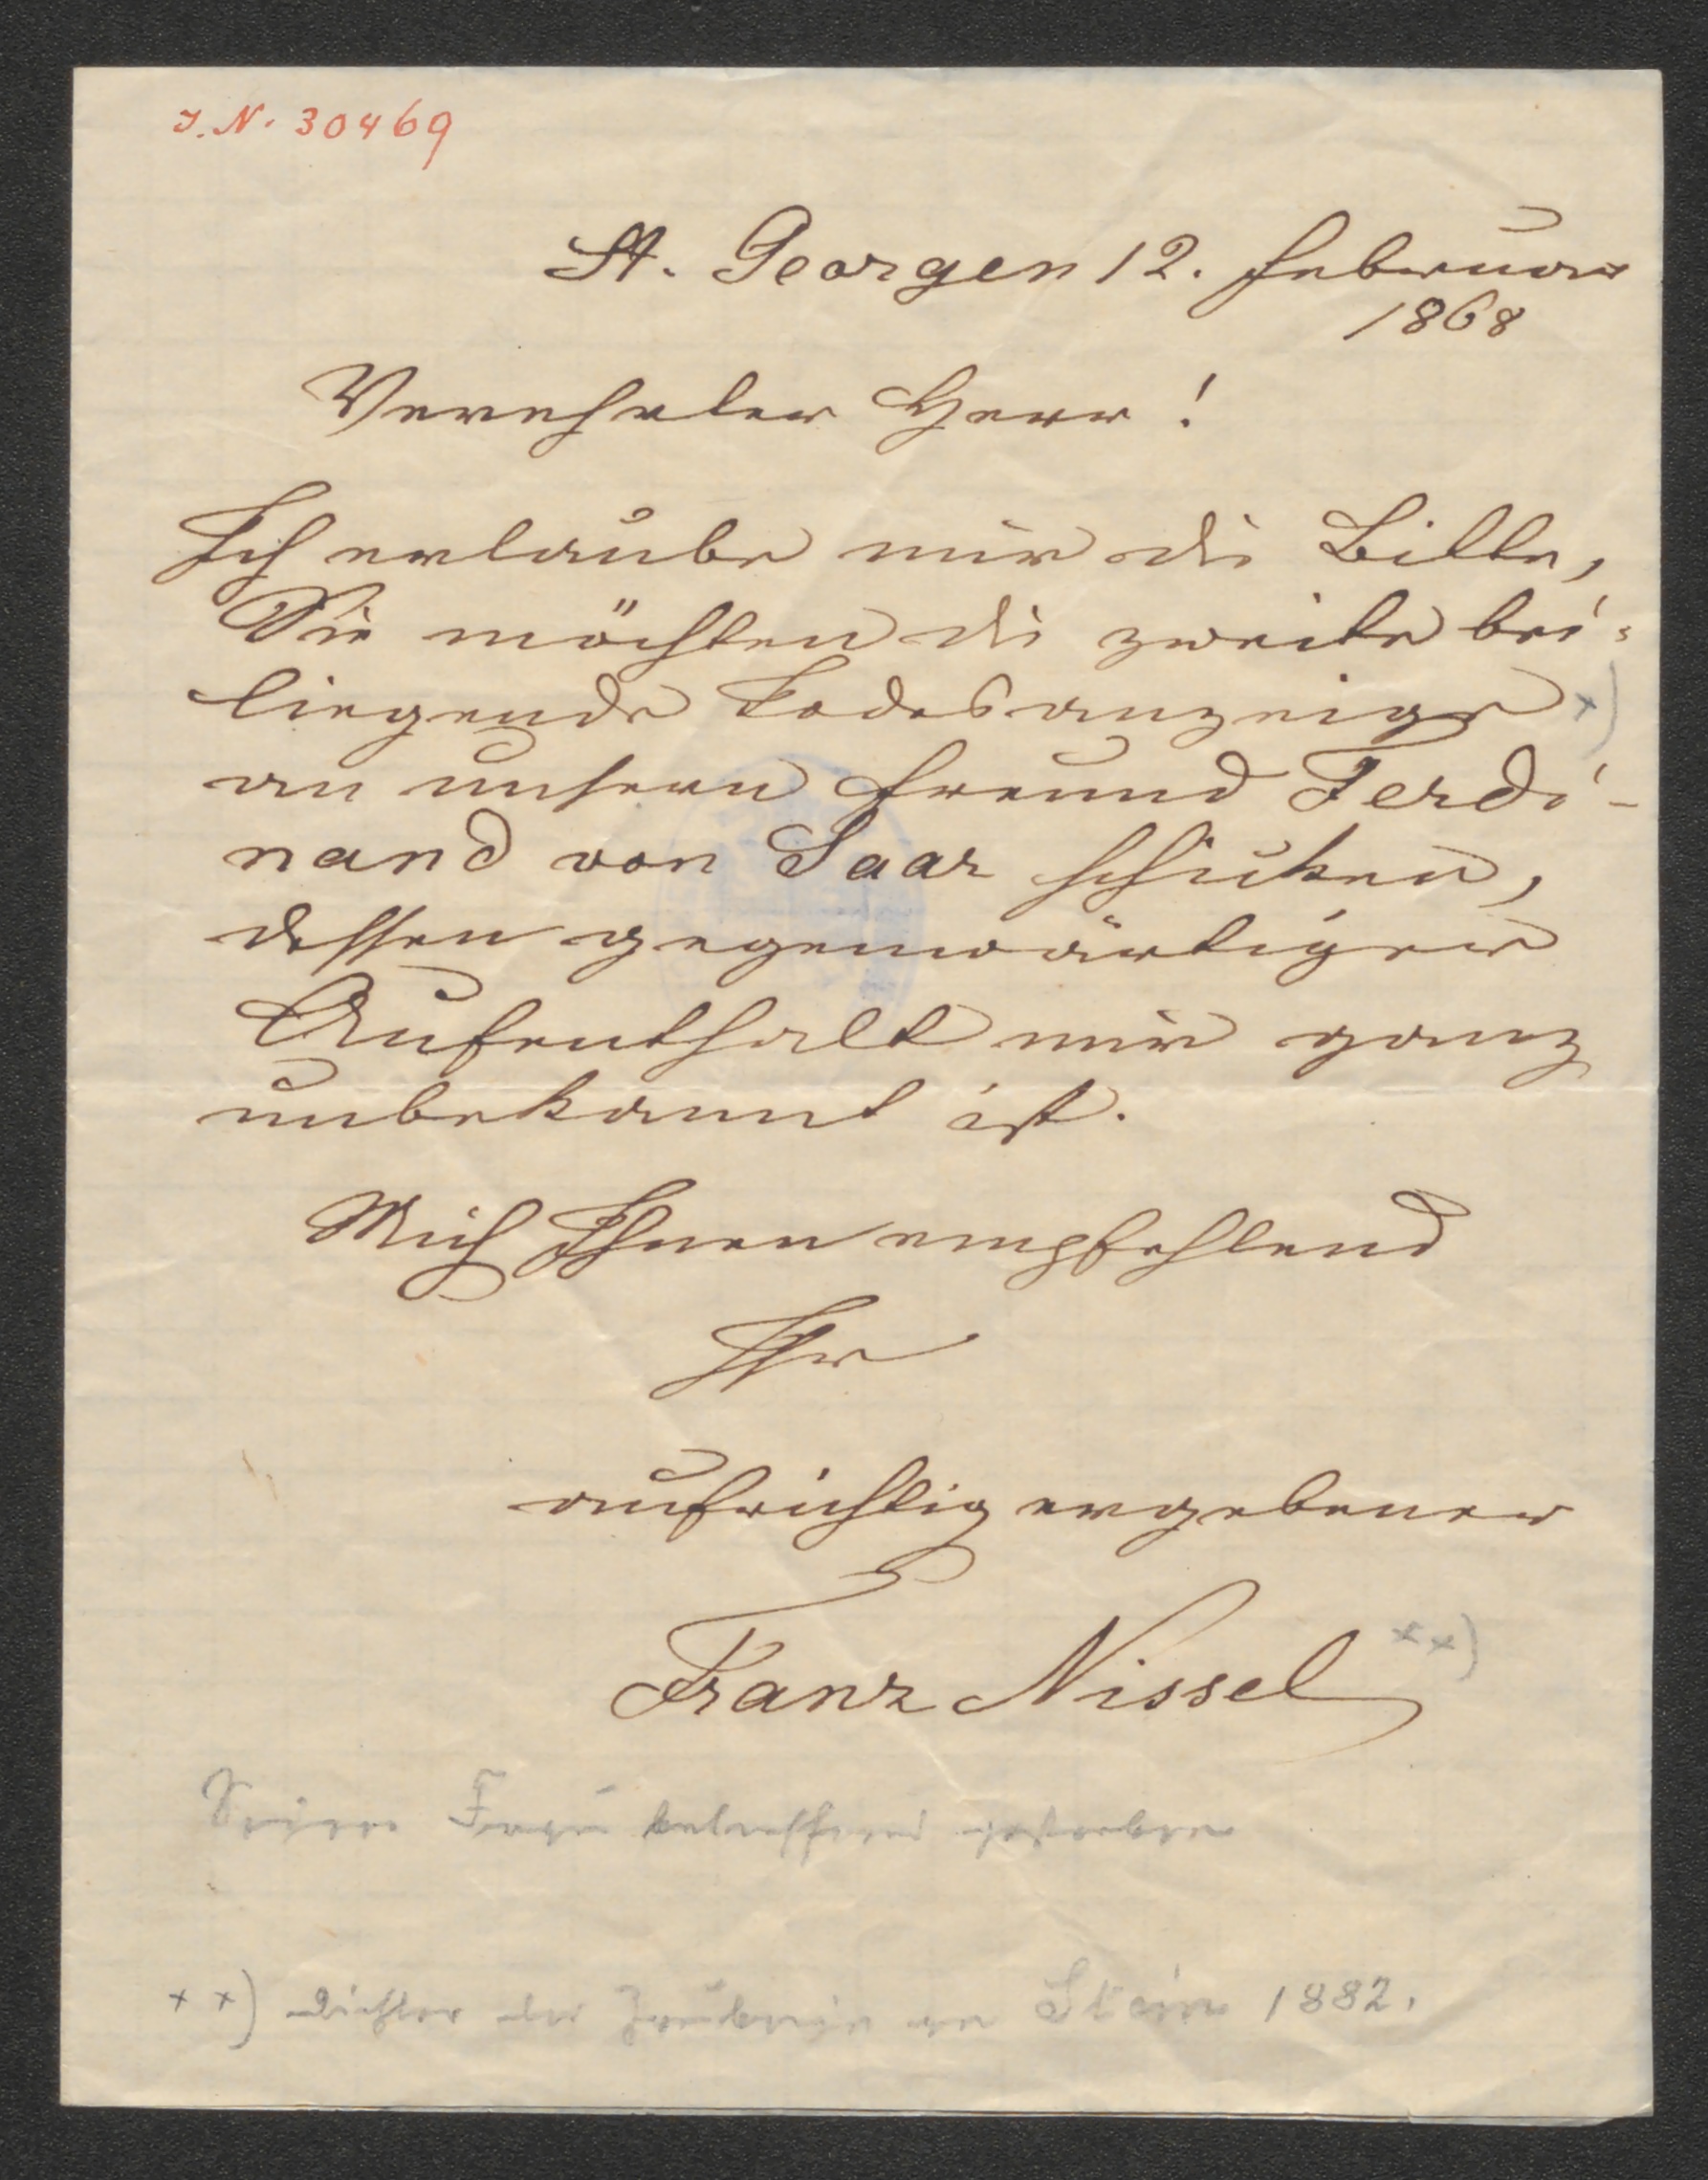 I. N. 30469
St. Georgen 12. Februar
1868
Verehrter Herr!
Ich erlaube mir die Bitte,
Sie möchten die zweite bei-
liegende Todesanzeige x)
an unsern Freund Ferdi-
nand von Saar schicken,
dessen gegenwärtiger
Aufenthalt mir ganz
unbekannt ist.
Mich Ihnen empfehlend
Ihr
aufrichtig ergebener
Franz Nissel xx)
Seine Frau betreffend gestorben
xx) Dichter der Zauberin am Stein 1882.